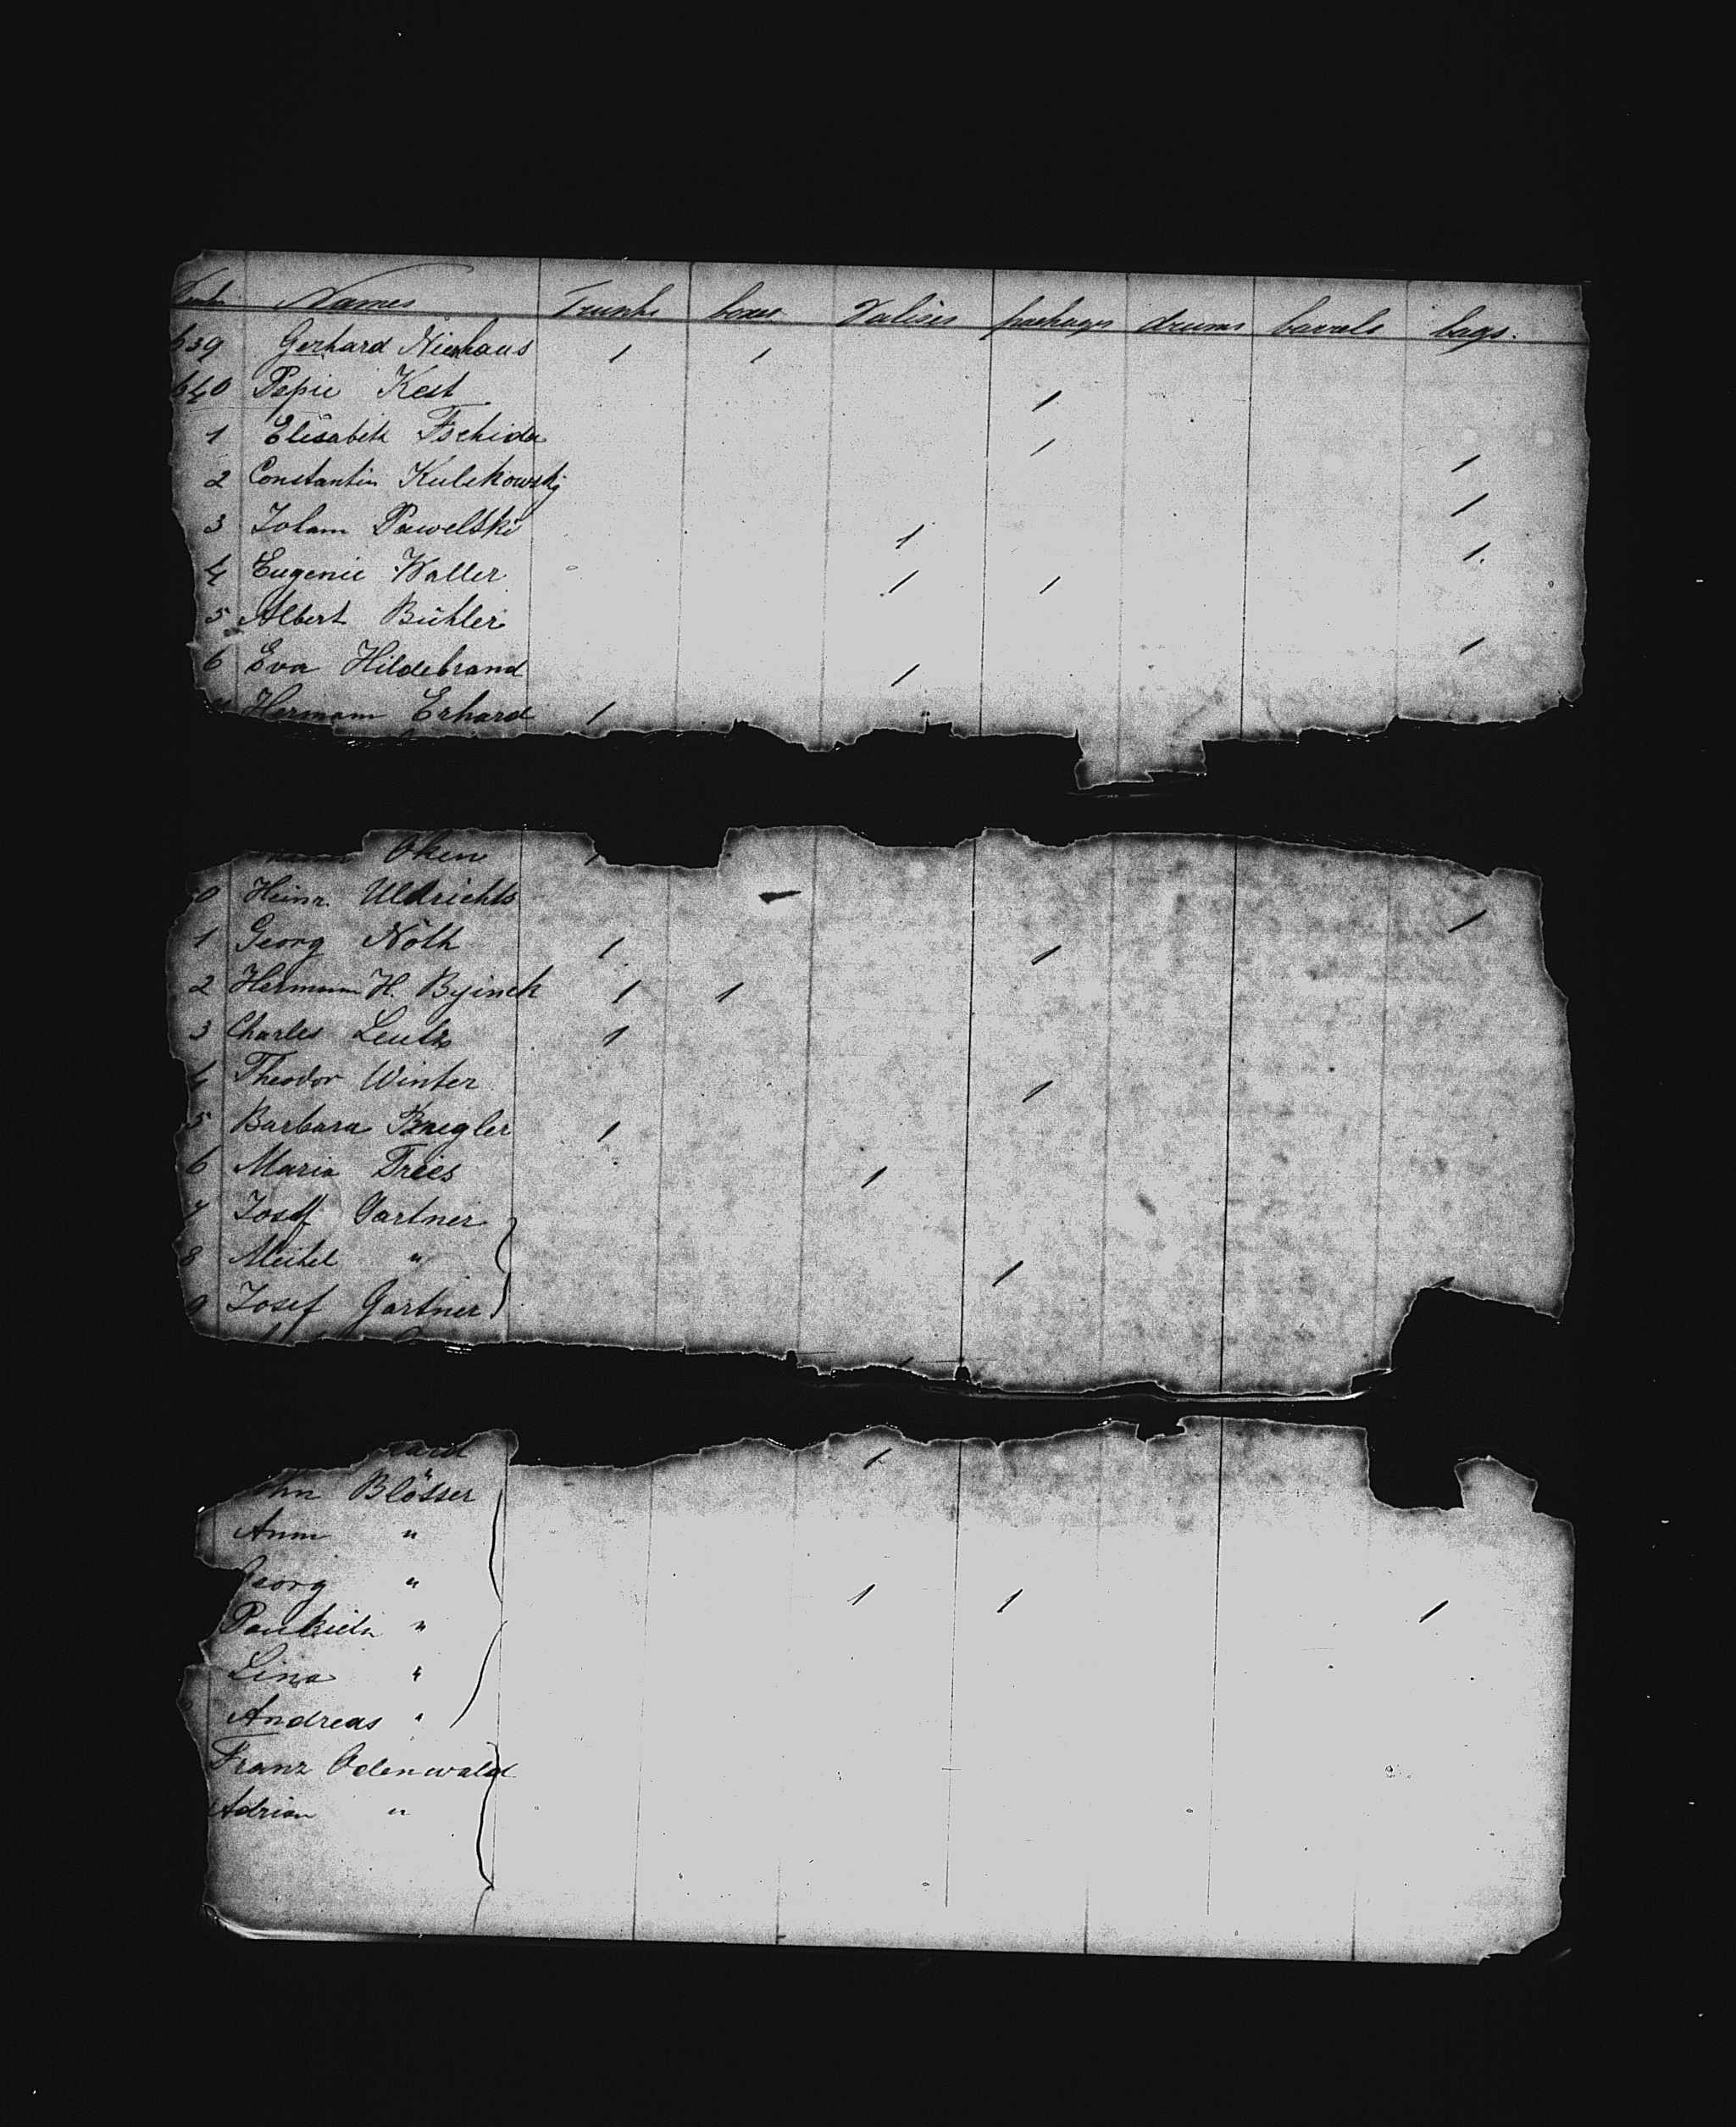 Names Trunks boxes Valises packages drums barrels bags.
639 Gerhard Nienhaus 1 1
640 Pepie Kest 1
1 Elisabeth Tschida 1
2 Constantin Kulikowsky 1
3 Joham Pawelski 1 1
4 Eugenie Waller 1 1 1.
5 Albert Bühler
6 Eva Hildebrand 1 1
Hermann Erhard 1
Oken 1
0 Heinr. Uldrichts
1 Georg Nöth 1 1 1
2 Hermann H. Byinck 1 1
3 Charles Leutz 1
4 Theodor Winter 1
5 Barbara 1
6 Maria Tries 1
7 Josef Gartner
8 "
9 Josef Gartner 1
1
Blösser
Ann "
Georg " 1 1 1
"
Lina "
Andreas "
Franz Odenwald
Adrian "